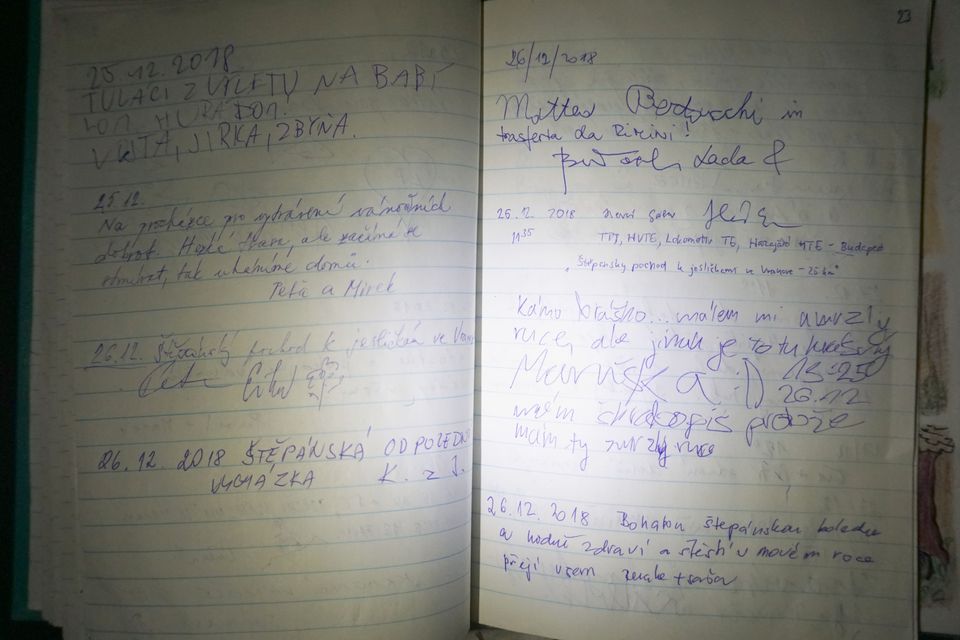 25.12.2018
TULÁCI Z VÝLETU NA BABÍ
LOM HURÁ DOM.
JIRKA, ZBYŇA.
25.12.
Na procházce pro vytrávení vánočních
dobrot. Hezké, ale začíná se
stmívat, tak domů.
Peťa a Mirek
26.12. Štěpánský pochod k jesličkám ve
26.12. 2018 ŠTĚPÁNSKÁ ODPOLEDNÍ
VYCHÁZKA K. z J.
23
26/12/2018
Matteo in
trasferta da Rimini!
Lada
25.12 2018
11 35 TTJ, HVTE, Lokomotiv TE, MTE - Budapest
"Štěpánský pochod k jesličkám ve Vranově - 25 km"
Kámo brácho... málem mi umrzly
ruce, ale jinak je to tu
Maruška :D 13:25
26.12
mám škrabopis protože
mám ty zmrzlý ruce
26.12.2018 Bohatou štěpánskou koledu
a hodně zdraví a štěstí v novém roce
přeji všem